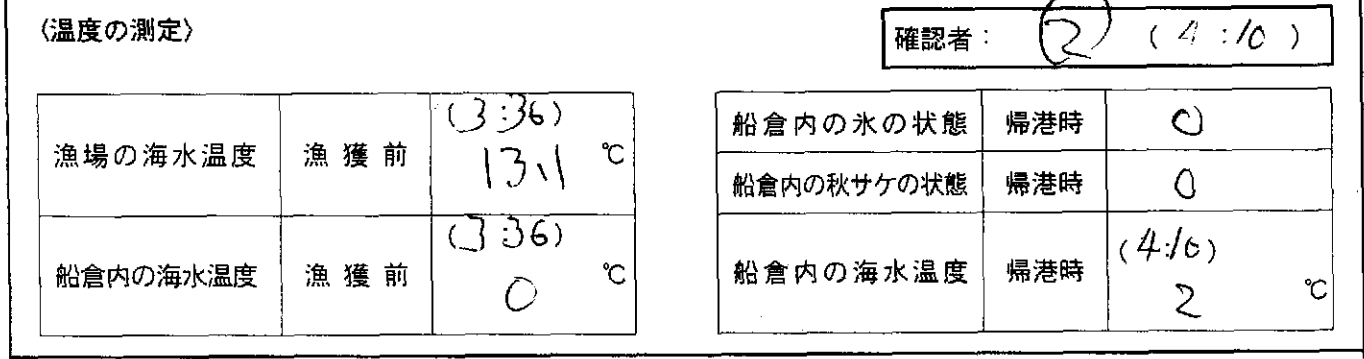 〈温度の測定〉
確認者： ② (4:10)
漁場の海水温度 漁獲前 (3:36) 13.1 ℃
船倉内の海水温度 漁獲前 (3:36) 0 ℃
船倉内の氷の状態 帰港時 ○
船倉内の秋サケの状態 帰港時 ○
船倉内の海水温度 帰港時 (4:10) 2 ℃